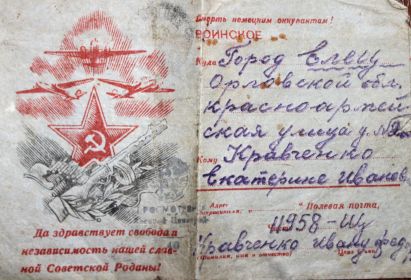 Да здравствует свобода и
независимость нашей слав-
ной Советской Родины!
Смерть немецким оккупантам!
ВОИНСКОЕ
Куда Город Елец
Орловской обл.
красноармей
ская улица д. №
Кому Кравченко
Екатерине Иванов
Адрес Полевая почта,
11958-Щ
Кравченко Ивану Фед
(Фамилия, имя и отчество)